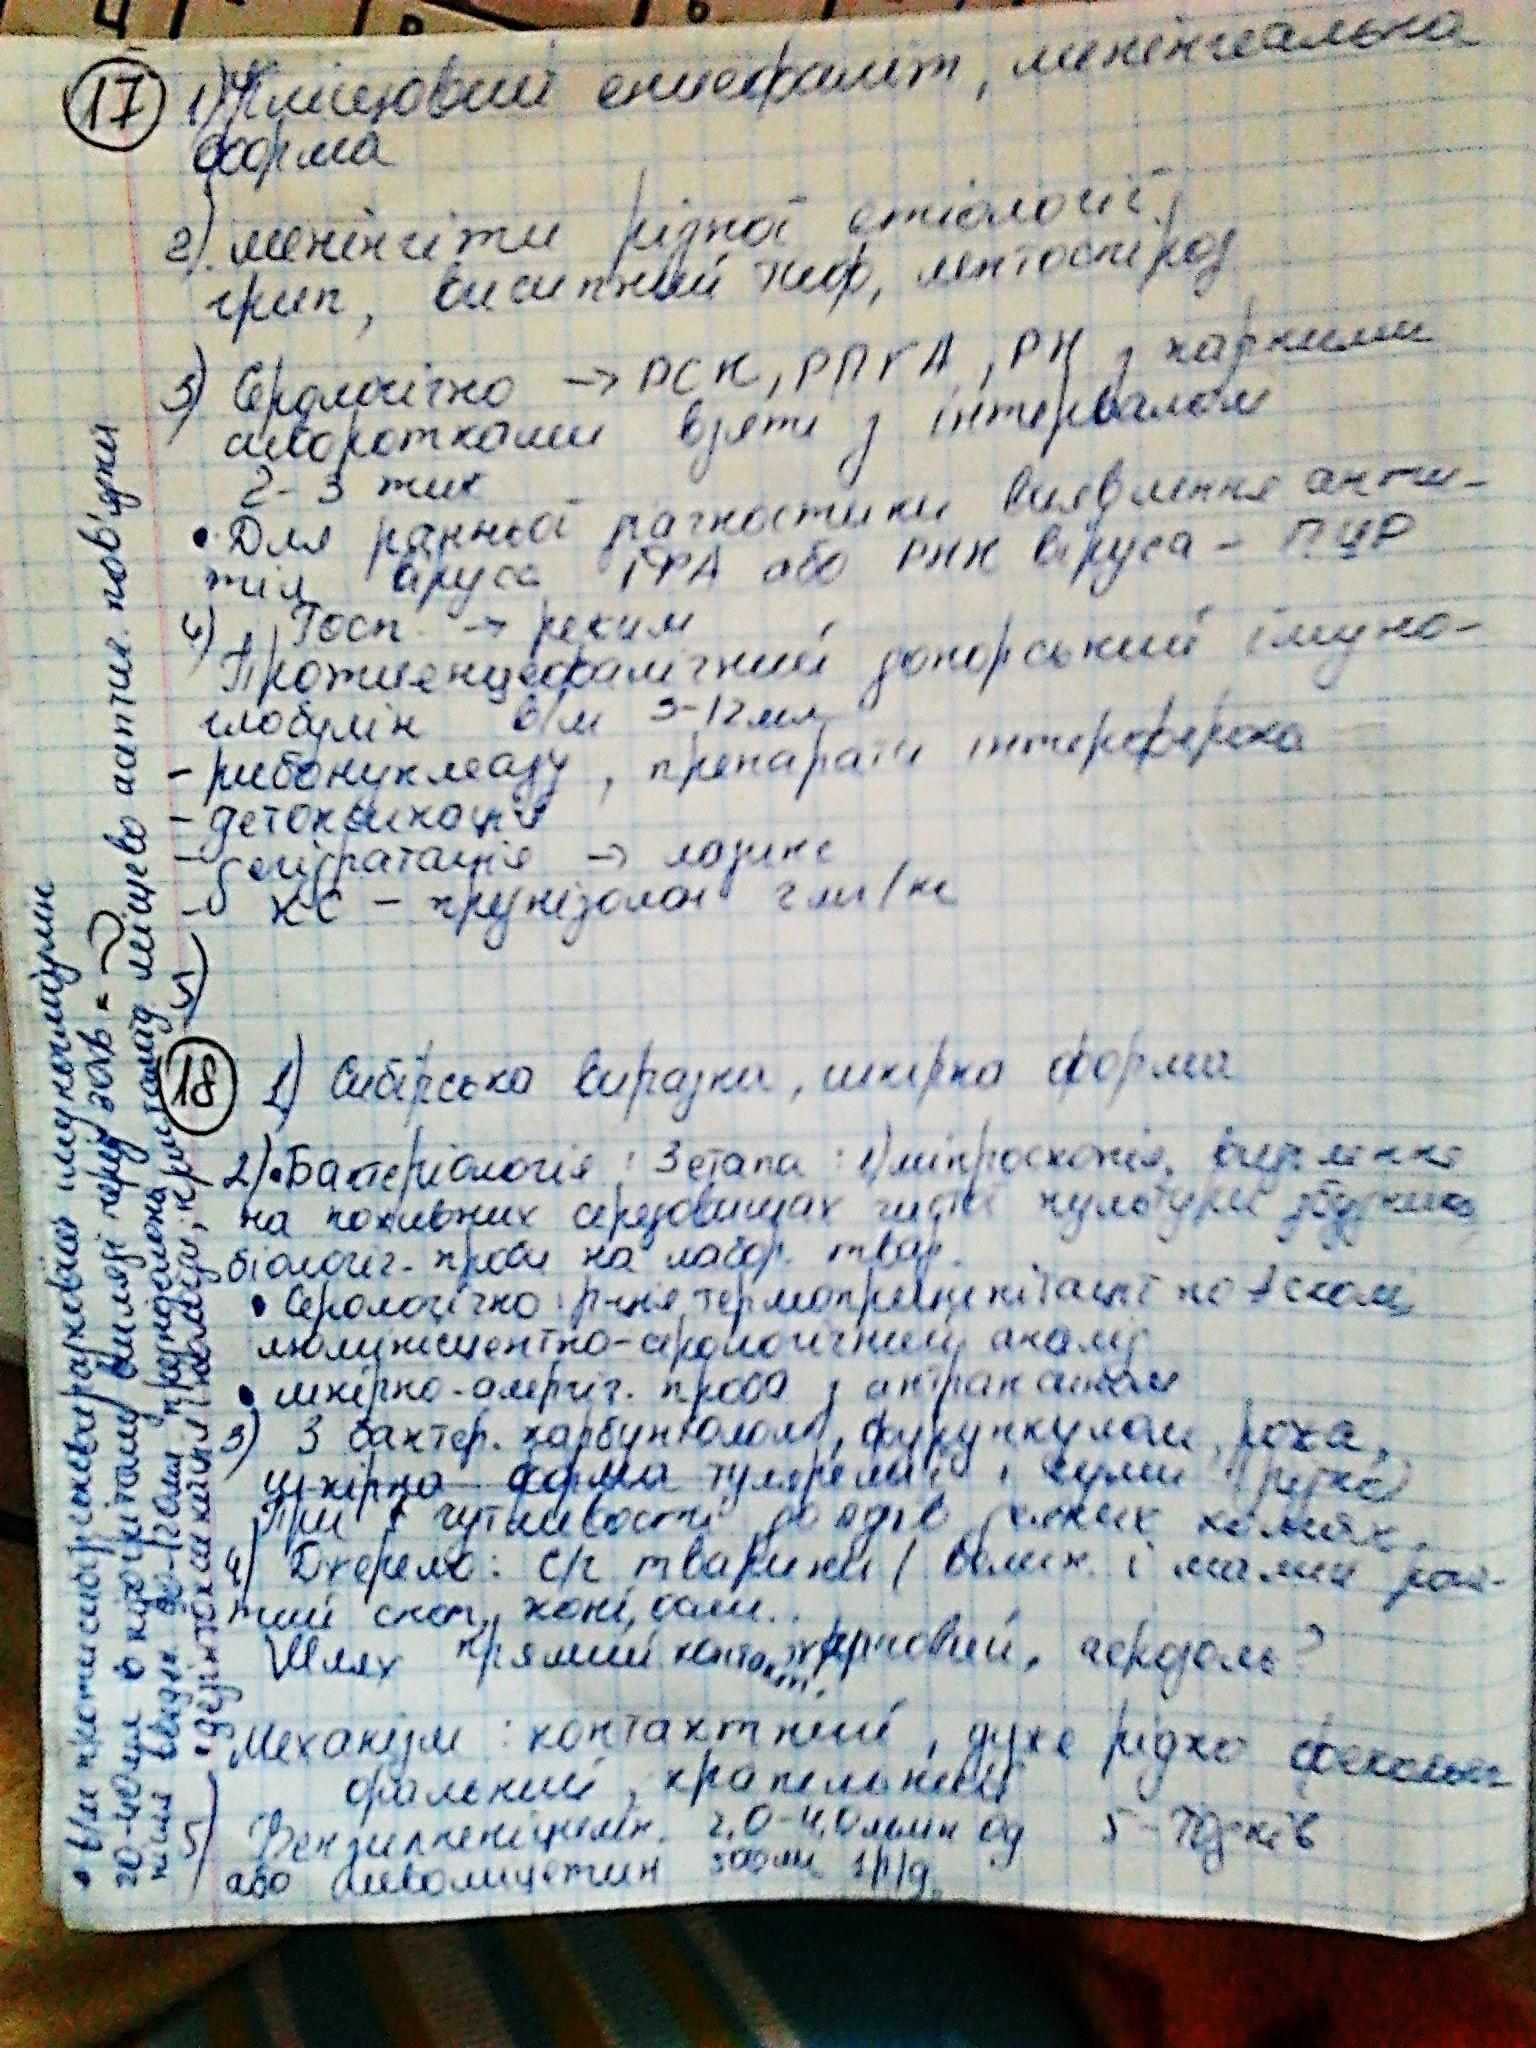 17 1) Кліщовий енцефаліт, менінгеальна
форма
2) менінгіти різної етіології,
грип, висипний тиф, лептоспіроз
3) Серологічно → РСК, РПГА, РН з парними
сиворотками взяті з інтервалом
2-3 тиж
• Для ранньої діагностики виявлення анти-
тіл вірусе ІФА або РНК віруса - ПЦР
4) Госп. → режим
Протиенцефалічний донорський імуно-
глобулін в/м 3-12мл
- рибонуклеазу, препарати інтерферона
- детоксикація
- дегідратація → лазикс
- КС - преднізолон 2 мг/кг
18 1) Сибірська виразка, шкірна форма
2) • Бактеріологія: 3 етапа: 1) мікроскопія, виділення
на поживних середовищах чистої культури збудника,
біологіч. проби на лабор. твар.
• Серологічно: р-ція термопреципітації по Асколі,
люмінісцентно-серологічний аналіз
• шкірно-алергіч. проба з антраксином
3) З бактер. карбункулом, фурункулом, рожа,
шкірна форма туляремії і чуми (рідко)
При чутливості до ядів
4) Джерело: с/г тварини (велик. і малий рога-
тий скот, коні, осли..
Шлях прямий контакт, харчовий, аерозоль?
Механізм: контактний, дуже рідко фекально
оральний, крапельний
5) Бензилпеніцилін. 2,0-4,0 млн од 5-7 днів
або левоміцетин
• в/м протисибірськовиразковий імуноглобулін
20-40мл
після введен. 90-120мг преднізолона
• дезінтоксикація
місцево аптич. пов'язки